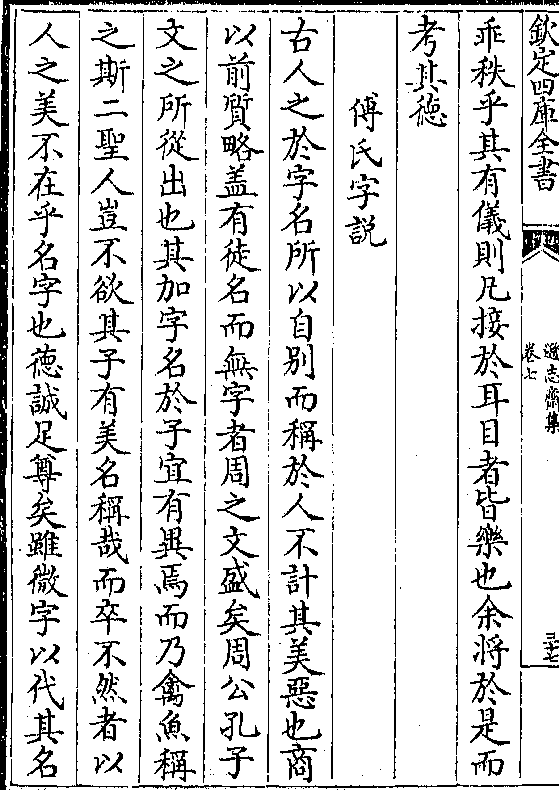 欽定四庫全書
遜志齋集
卷七
三十七
乖秩乎其有儀則凡接於耳目者皆樂也余將於是而
考其徳
傅氏字説
古人之於字名所以自别而稱於人不計其美惡也商
以前質略盖有徒名而無字者周之文盛矣周公孔子
文之所從出也其加字名於子宜有異焉而乃禽魚稱
之斯二聖人豈不欲其子有美名稱哉而卒不然者以
人之美不在乎名字也徳誠足尊矣雖微字以代其名